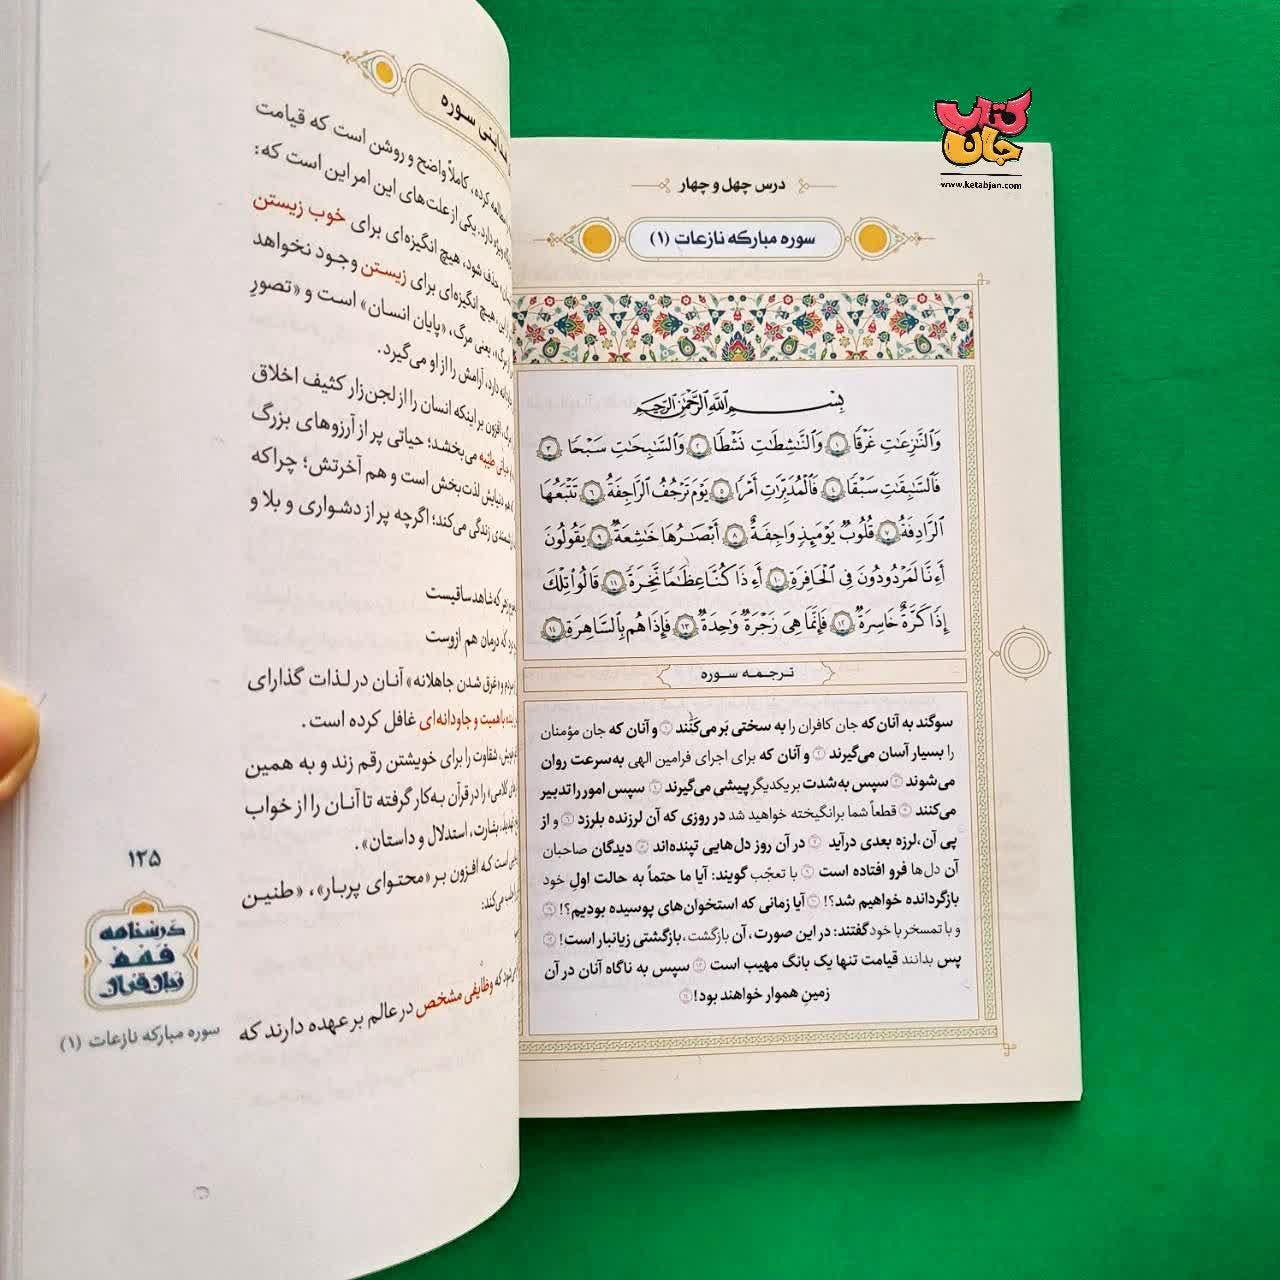 کتاب
جان
www.ketabjan.com
درس چهل و چهار
سوره مبارکه نازعات (۱)
بِسْمِ ٱللَّهِ ٱلرَّحْمَٰنِ ٱلرَّحِيمِ
وَٱلنَّٰزِعَٰتِ غَرْقًا ١ وَٱلنَّٰشِطَٰتِ نَشْطًا ٢ وَٱلسَّٰبِحَٰتِ سَبْحًا ٣
فَٱلسَّٰبِقَٰتِ سَبْقًا ٤ فَٱلْمُدَبِّرَٰتِ أَمْرًا ٥ يَوْمَ تَرْجُفُ ٱلرَّاجِفَةُ ٦ تَتْبَعُهَا
ٱلرَّادِفَةُ ٧ قُلُوبٌ يَوْمَئِذٍ وَاجِفَةٌ ٨ أَبْصَٰرُهَا خَٰشِعَةٌ ٩ يَقُولُونَ
أَءِنَّا لَمَرْدُودُونَ فِي ٱلْحَافِرَةِ ١٠ أَءِذَا كُنَّا عِظَٰمًا نَّخِرَةً ١١ قَالُوا۟ تِلْكَ
إِذًا كَرَّةٌ خَاسِرَةٌ ١٢ فَإِنَّمَا هِيَ زَجْرَةٌ وَٰحِدَةٌ ١٣ فَإِذَا هُم بِٱلسَّاهِرَةِ ١٤
ترجمه سوره
سوگند به آنان که جان کافران را به سختی بَر می‌کَنَند ۱ و آنان که جان مؤمنان
را بسیار آسان می‌گیرند ۲ و آنان که برای اجرای فرامین الهی به‌سرعت روان
می‌شوند ۳ سپس به‌شدت بر یکدیگر پیشی می‌گیرند ۴ سپس امور را تدبیر
می‌کنند ۵ قطعاً شما برانگیخته خواهید شد در روزی که آن لرزنده بلرزد ۶ و از
پی آن، لرزه بعدی درآید ۷ در آن روز دل‌هایی تپنده‌اند ۸ دیدگان صاحبان
آن دل‌ها فرو افتاده است ۹ با تعجّب گویند: آیا ما حتماً به حالت اولِ خود
بازگردانده خواهیم شد؟! ۱۰ آیا زمانی که استخوان‌های پوسیده بودیم؟! ۱۱
و با تمسخر با خود گفتند: در این صورت، آن بازگشت، بازگشتی زیانبار است! ۱۲
پس بدانند قیامت تنها یک بانگ مهیب است ۱۳ سپس به ناگاه آنان در آن
زمینِ هموار خواهند بود! ۱۴
سوره
مطالعه کرده، کاملاً واضح و روشن است که قیامت
دارد. یکی از علت‌های این امر این است که:
حذف شود، هیچ انگیزه‌ای برای خوب زیستن
هیچ انگیزه‌ای برای زیستن وجود نخواهد
مرگ، یعنی مرگ، «پایان انسان» است و «تصورِ
دارد، آرامش را از او می‌گیرد.
افزون بر اینکه انسان را از لجن‌زار کثیف اخلاق
طیبه می‌بخشد؛ حیاتی پر از آرزوهای بزرگ
هم دنیایش لذت‌بخش است و هم آخرتش؛ چراکه
زندگی می‌کند؛ اگرچه پر از دشواری و بلا و
که شاهد ساقیست
که درمان هم ازوست
و «غرق شدن جاهلانه» آنان در لذات گذارای
بااهمیت و جاودانه‌ای غافل کرده است.
شقاوت را برای خویشتن رقم زند و به همین
را در قرآن به‌کار گرفته تا آنان را از خواب
بشارت، استدلال و داستان».
است که افزون بر «محتوای پربار»، «طنین
می‌کند:
که وظایفی مشخص در عالم بر عهده دارند که
۱۲۵
درسنامه
فهم
زبان قرآن
سوره مبارکه نازعات (۱)